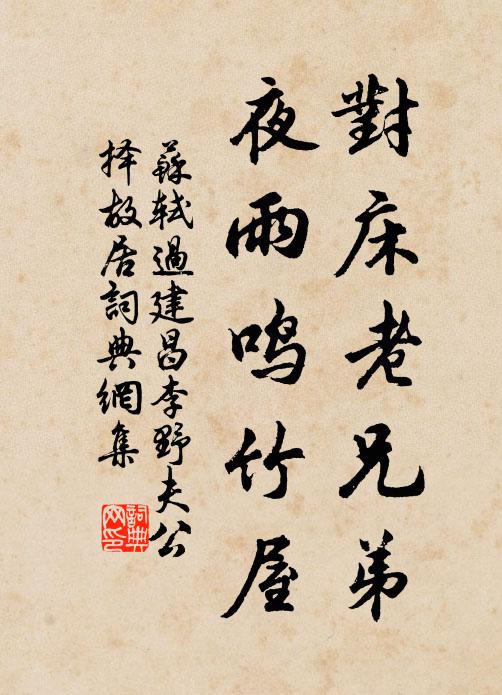 對床老兄弟
夜雨鸣竹屋
蘇軾過建昌李野夫公
择故居詞典網集
詞典网印